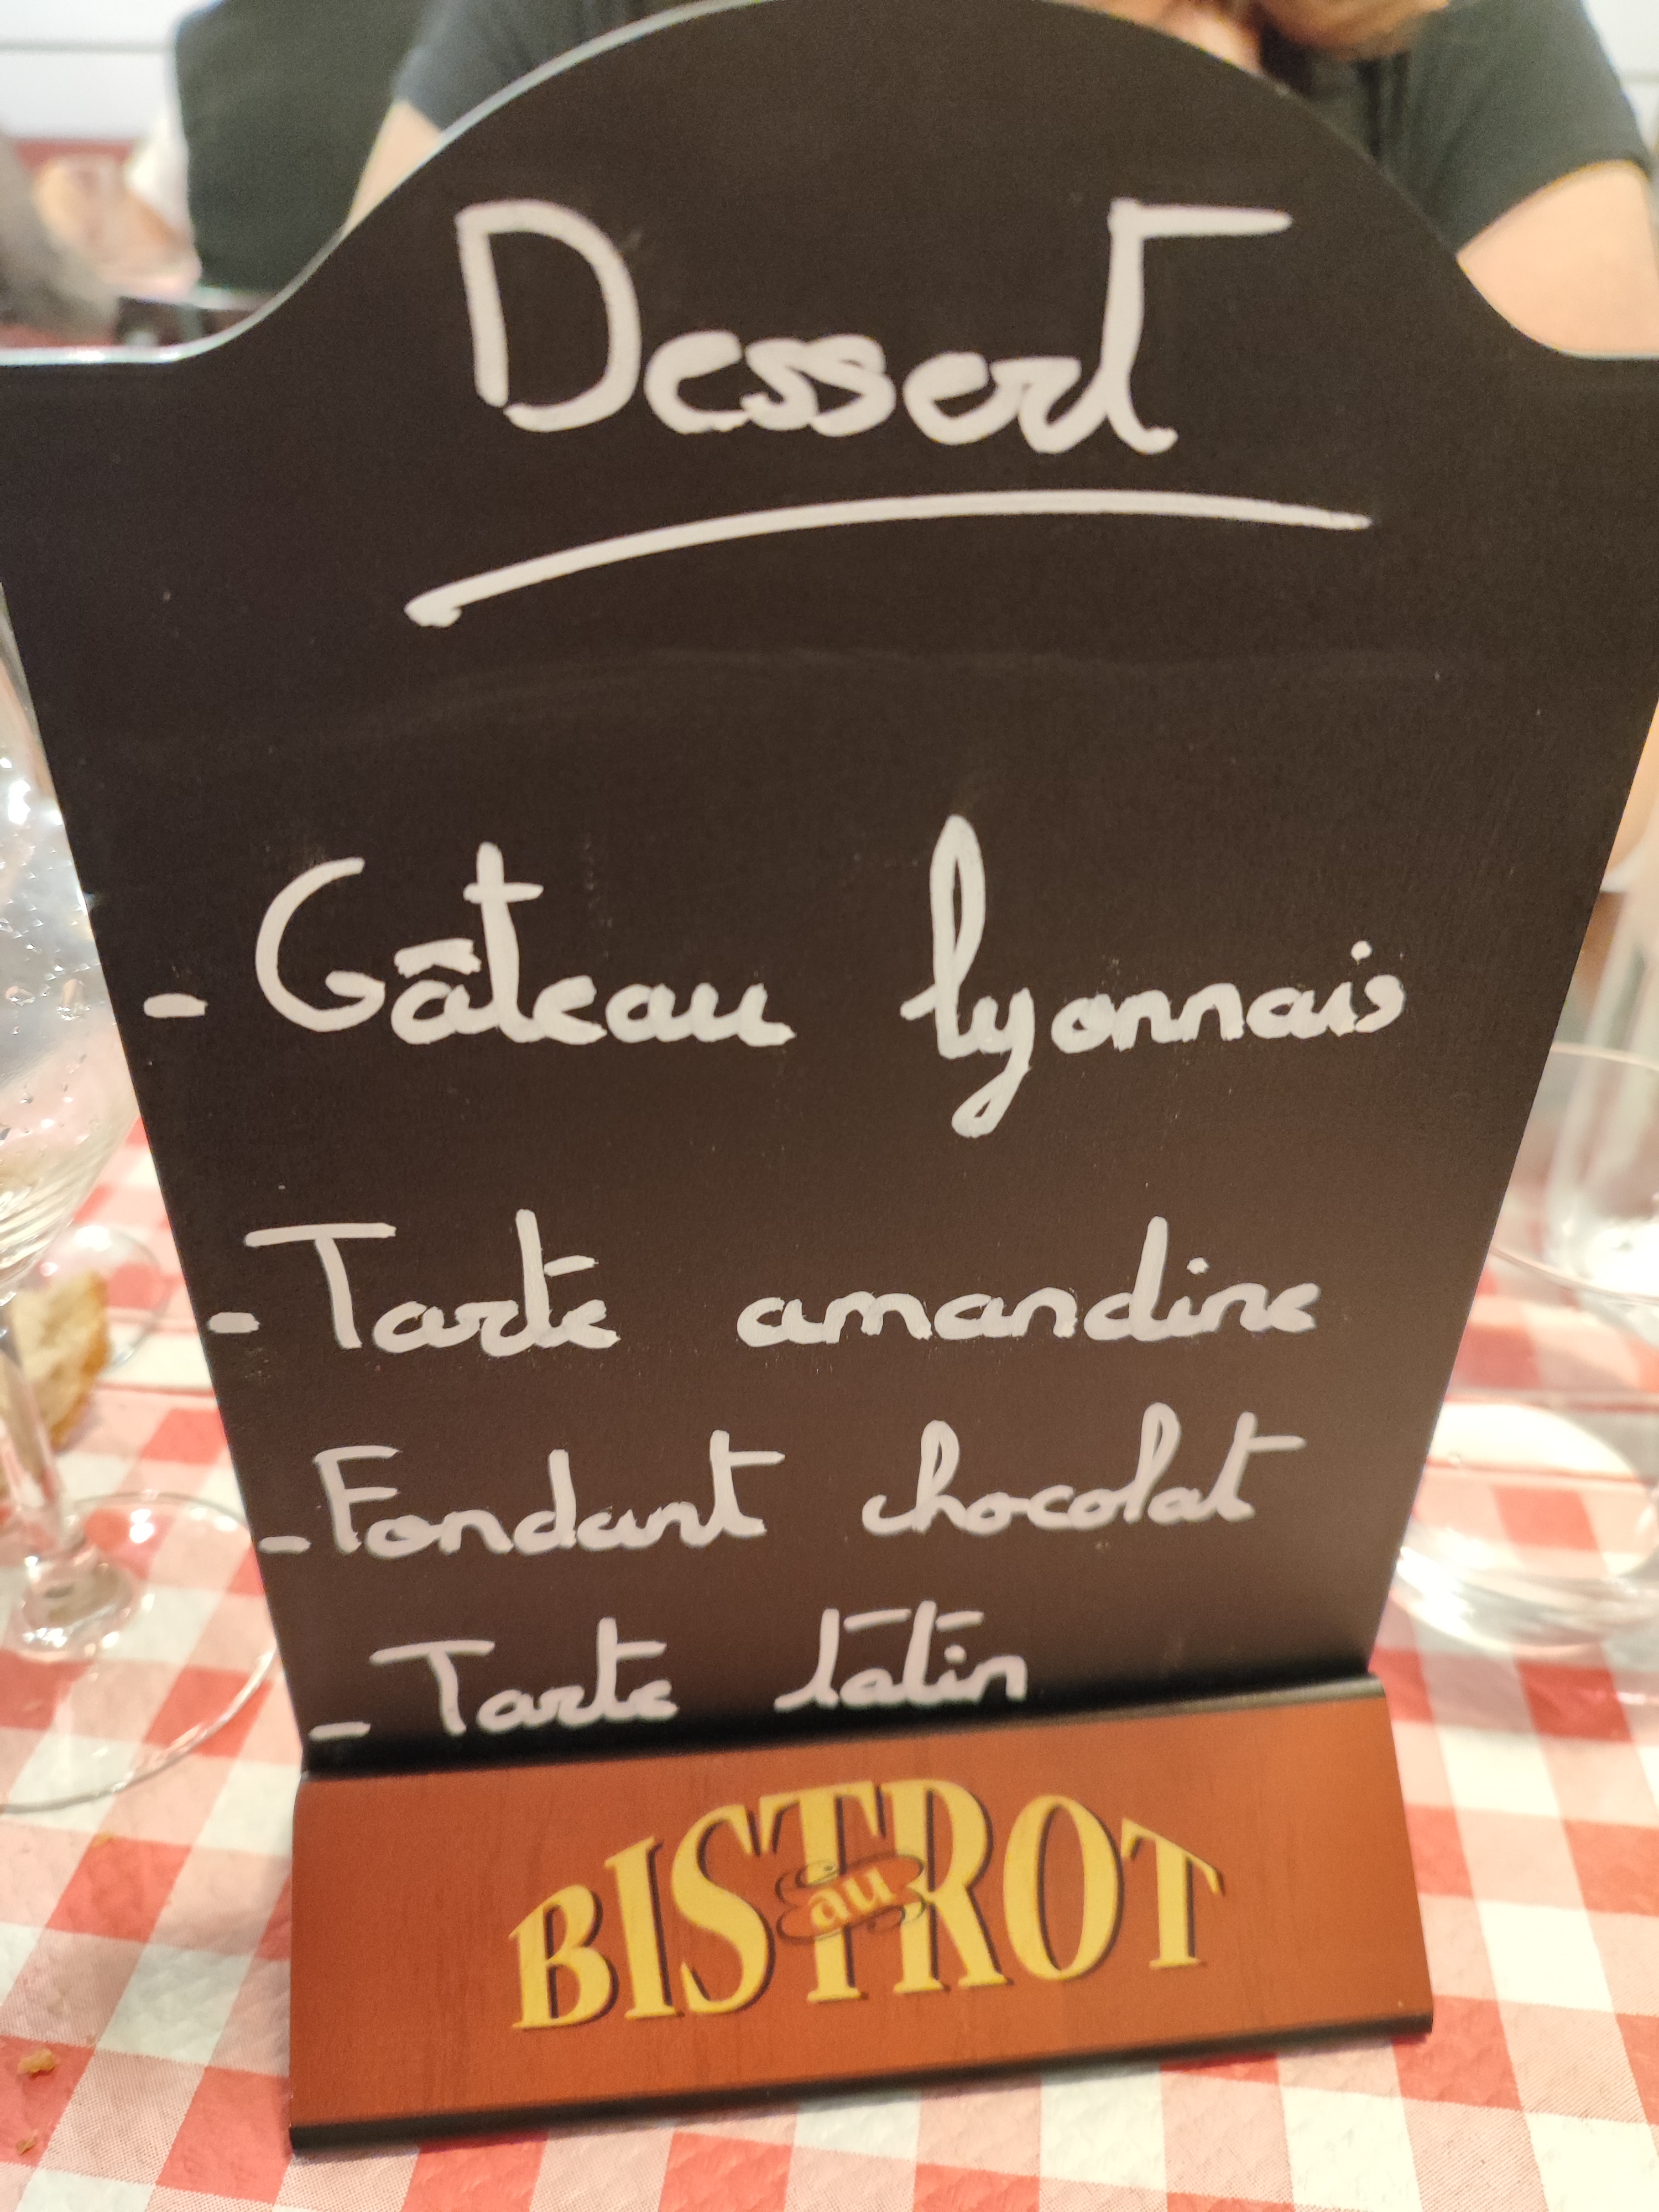 Dessert
- Gâteau lyonnais
- Tarte amandine
- Fondant chocolat
- Tarte tatin
BISTROT
au